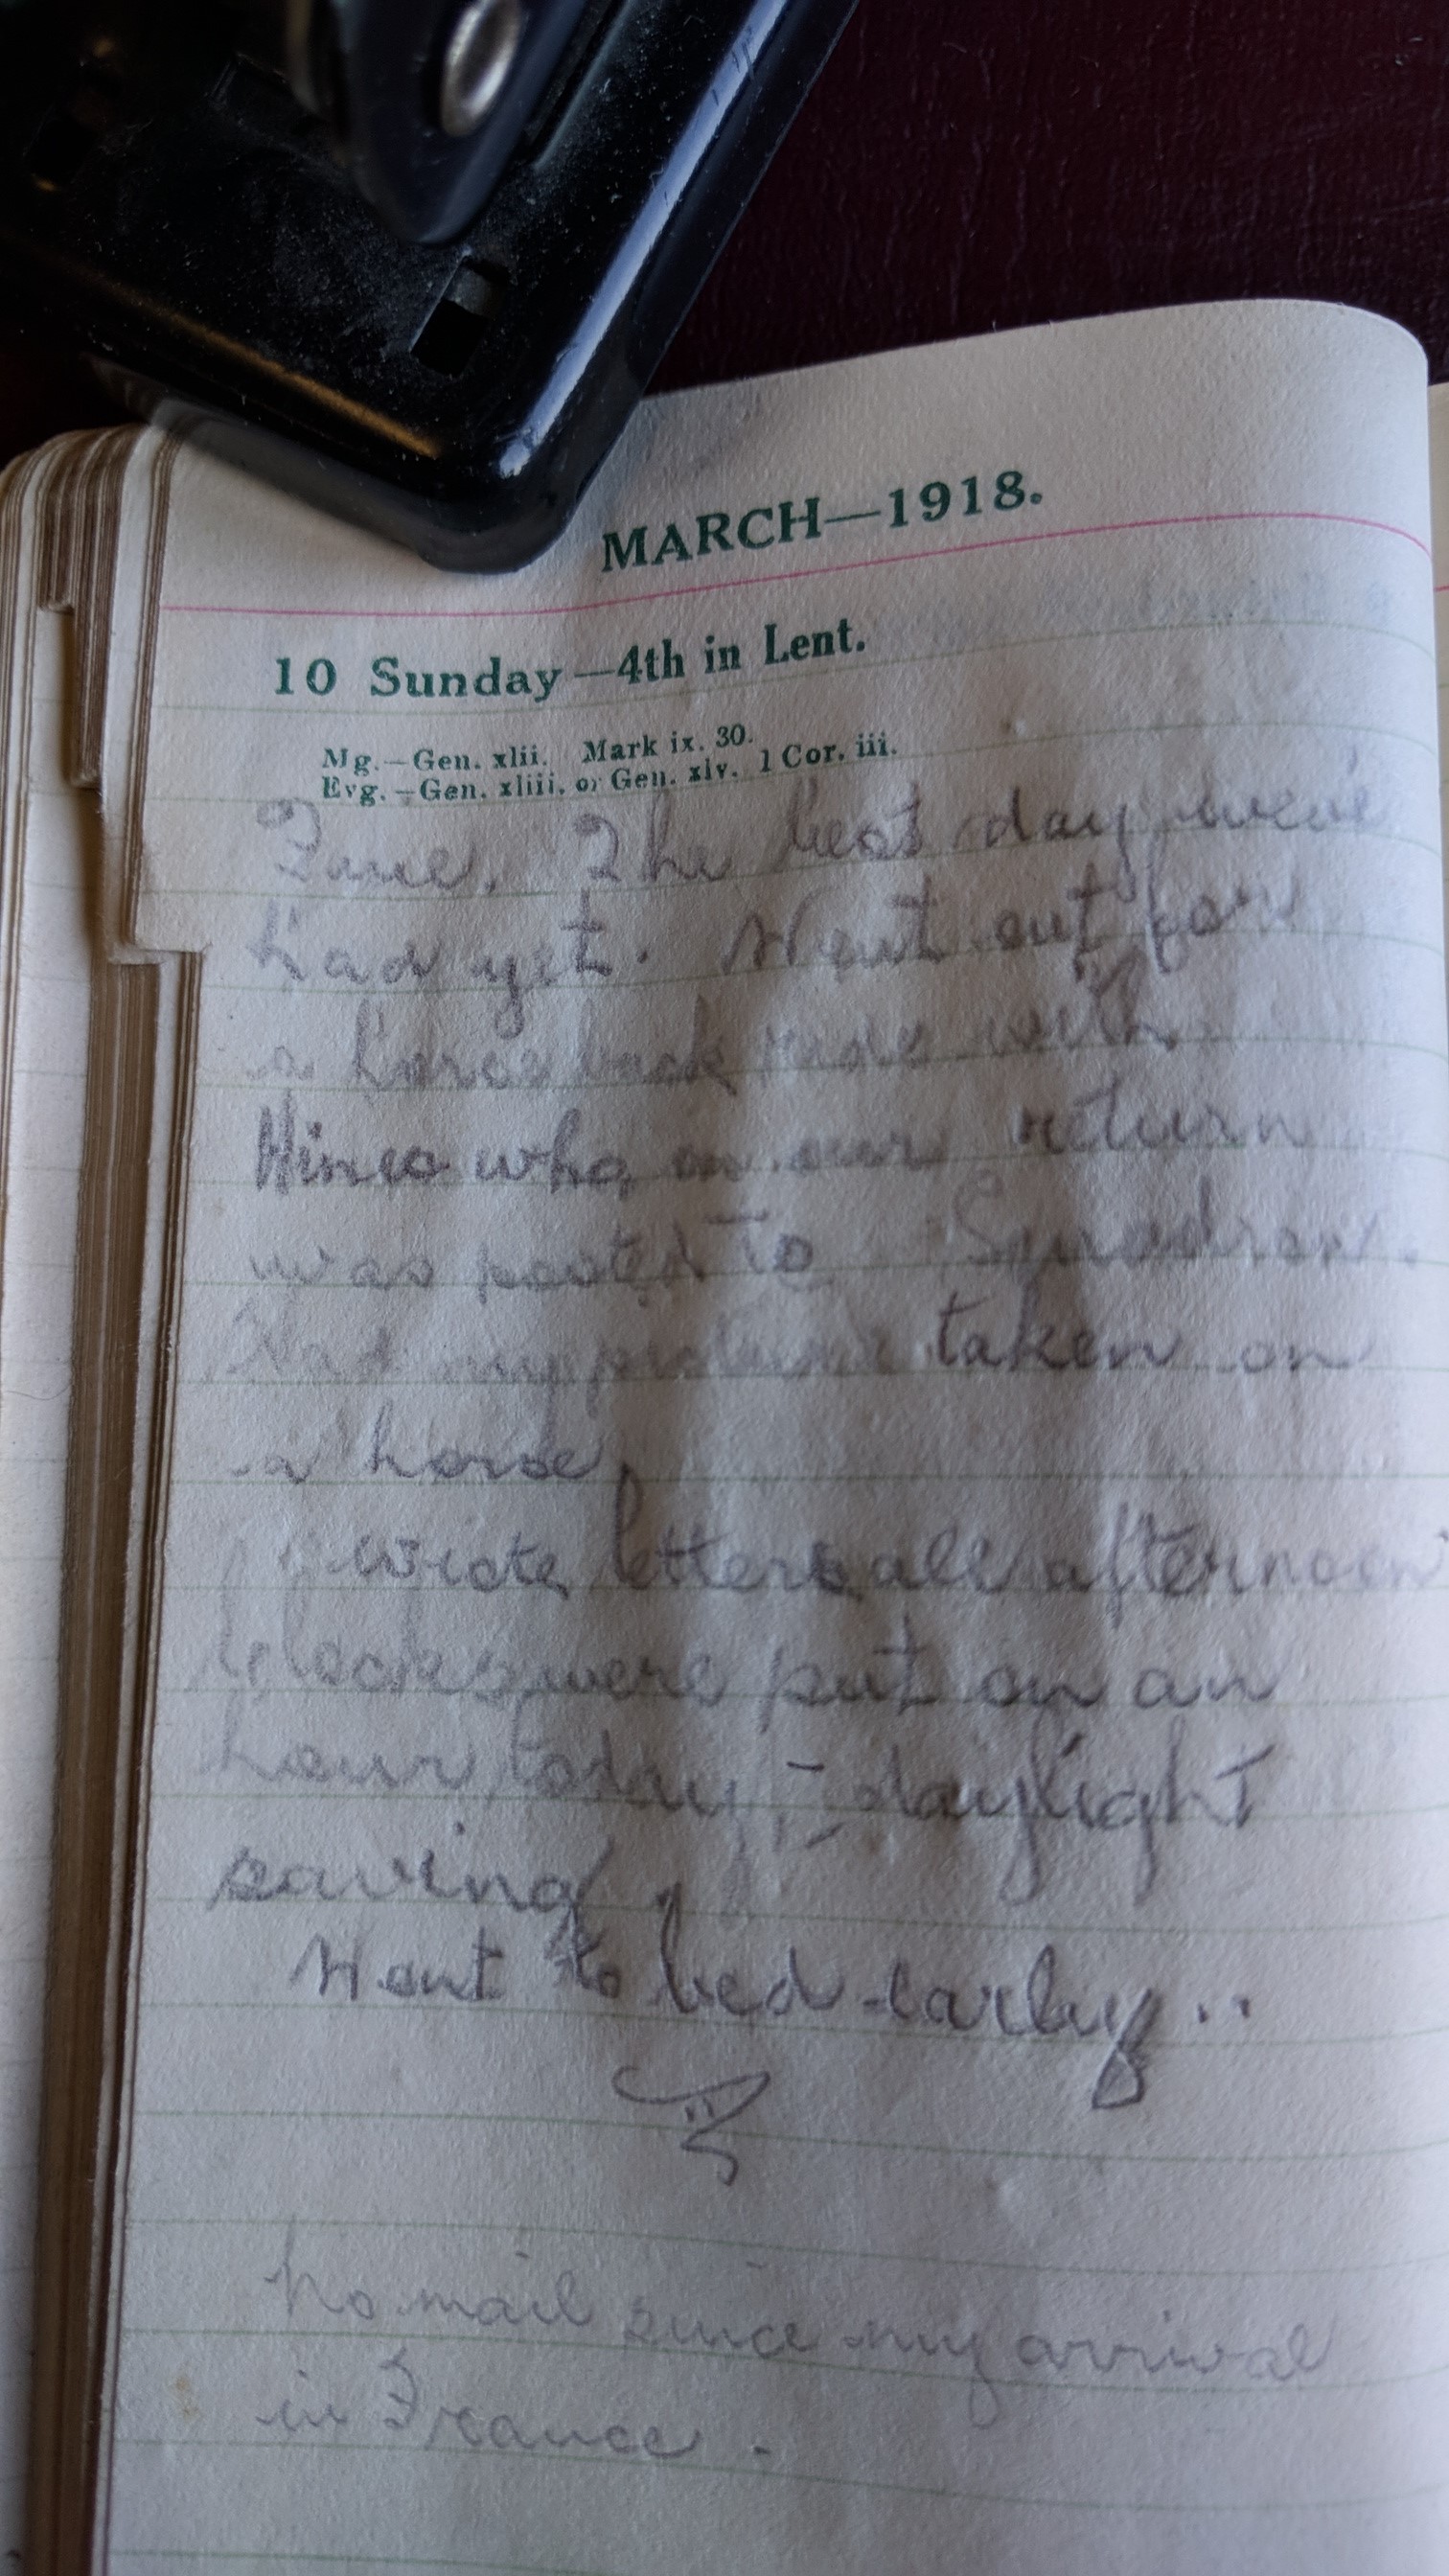 MARCH—1918.
10 Sunday—4th in Lent.
Mg.—Gen. xlii. Mark ix. 30.
Evg.—Gen. xliii. or Gen. xlv. 1 Cor. iii.
Fine. The best day weve
had yet. Went out for
a horseback ride with
Hines who, on our return
was posted to Squadron.
Had my picture taken on
a horse.
Wrote letters all afternoon
Clocks were put on an
hour today, – daylight
saving.
Went to bed early..
No mail since my arrival
in France.